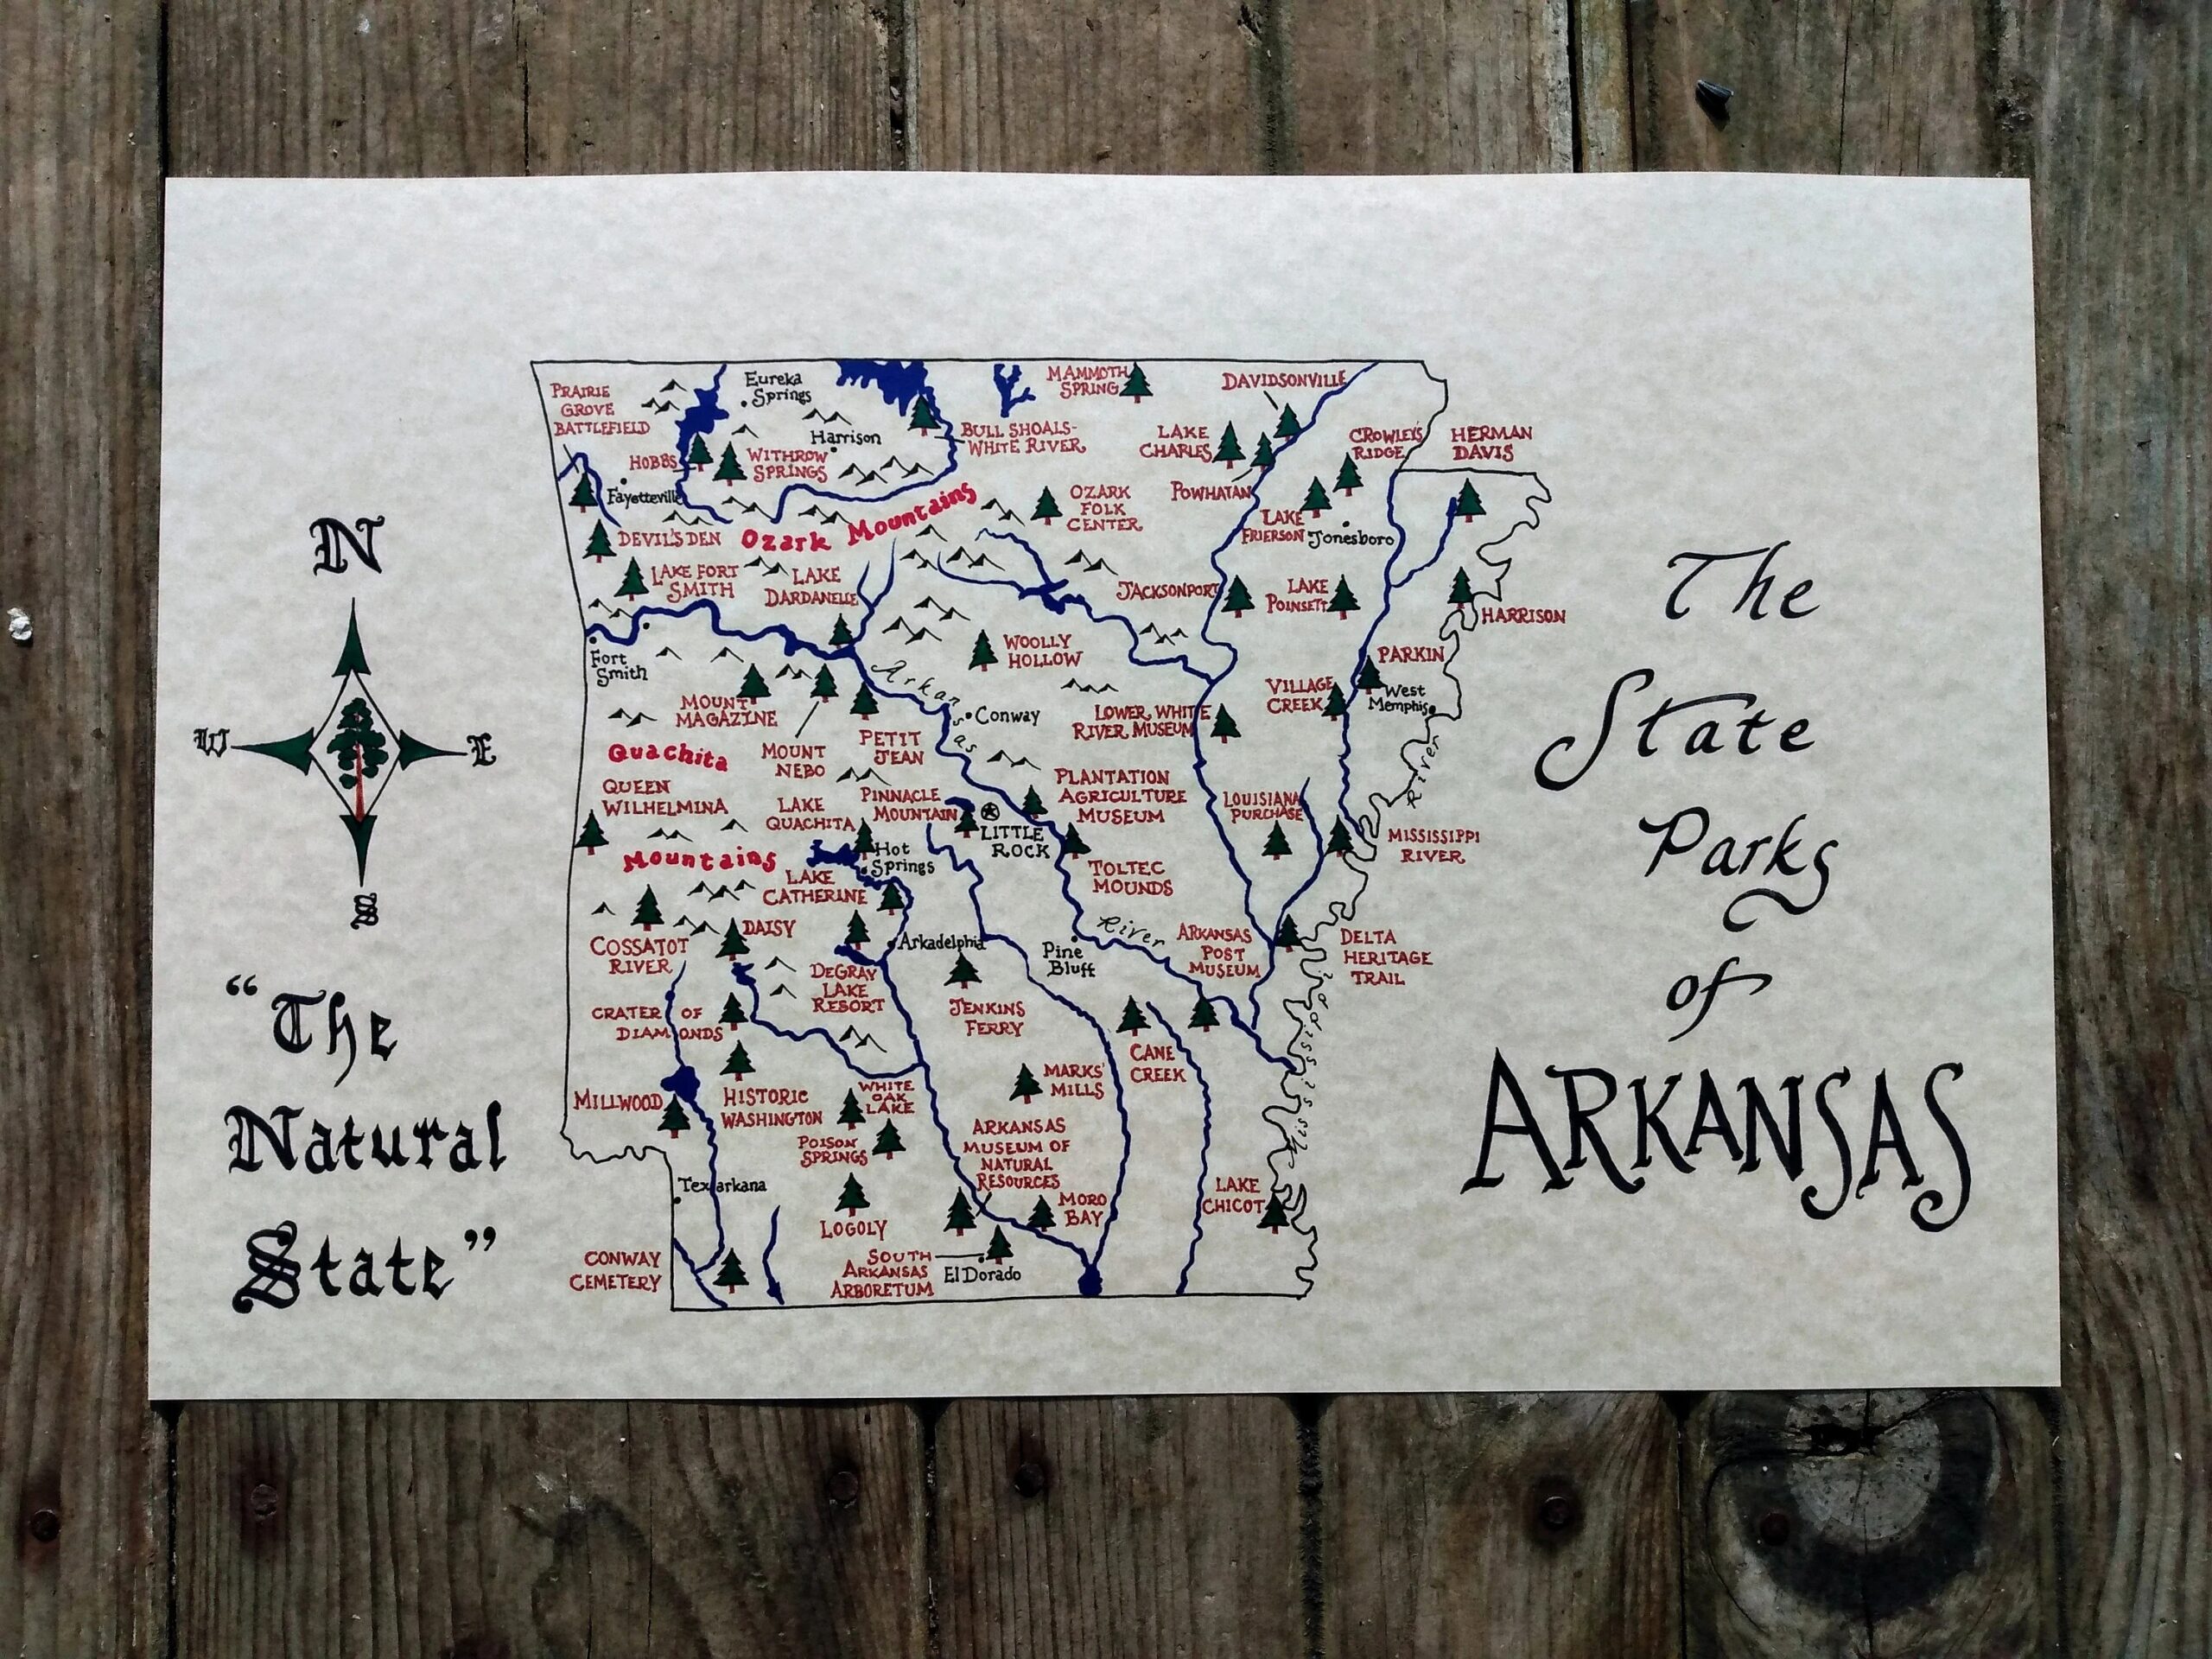 N
W
E
S
"The
Natural
State"
The
State
Parks
of
ARKANSAS
PRAIRIE
GROVE
BATTLEFIELD
Eureka
Springs
MAMMOTH
SPRING
DAVIDSONVILLE
Harrison
BULL SHOALS-
WHITE RIVER
LAKE
CHARLES
CROWLEY'S
RIDGE
HERMAN
DAVIS
HOBBS
WITHROW
SPRINGS
Fayetteville
OZARK
FOLK
CENTER
POWHATAN
LAKE
FRIERSON
Jonesboro
DEVIL'S DEN
Ozark Mountains
LAKE FORT
SMITH
LAKE
DARDANELLE
JACKSONPORT
LAKE
POINSETT
HARRISON
Fort
Smith
WOOLLY
HOLLOW
PARKIN
Arkansas
MOUNT
MAGAZINE
VILLAGE
CREEK
West
Memphis
Conway
LOWER WHITE
RIVER MUSEUM
Quachita
MOUNT
NEBO
PETIT
JEAN
River
QUEEN
WILHELMINA
LAKE
QUACHITA
PINNACLE
MOUNTAIN
PLANTATION
AGRICULTURE
MUSEUM
LOUISIANA
PURCHASE
LITTLE
ROCK
MISSISSIPPI
RIVER
Mountains
Hot
Springs
TOLTEC
MOUNDS
LAKE
CATHERINE
COSSATOT
RIVER
DAISY
Arkadelphia
Pine
Bluff
River
ARKANSAS
POST
MUSEUM
DELTA
HERITAGE
TRAIL
DEGRAY
LAKE
RESORT
CRATER OF
DIAMONDS
JENKINS
FERRY
CANE
CREEK
Mississippi
MILLWOOD
HISTORIC
WASHINGTON
WHITE
OAK
LAKE
MARKS'
MILLS
POISON
SPRINGS
ARKANSAS
MUSEUM OF
NATURAL
RESOURCES
Texarkana
LOGOLY
MORO
BAY
LAKE
CHICOT
CONWAY
CEMETERY
SOUTH
ARKANSAS
ARBORETUM
El Dorado